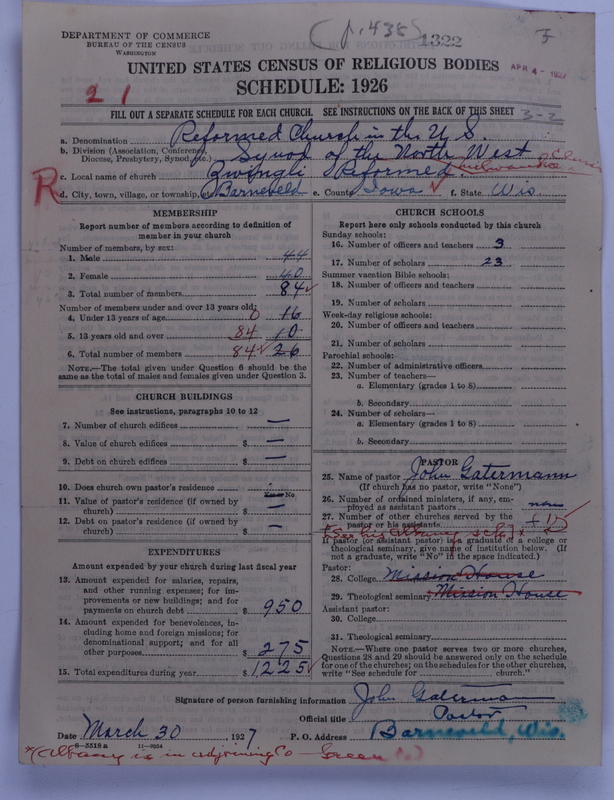 DEPARTMENT OF COMMERCE
BUREAU OF THE CENSUS
WASHINGTON
(p. 438)
1322
UNITED STATES CENSUS OF RELIGIOUS BODIES
APR 4 - 1927
SCHEDULE: 1926
2 1
FILL OUT A SEPARATE SCHEDULE FOR EACH CHURCH. SEE INSTRUCTIONS ON THE BACK OF THIS SHEET
3-2
a. Denomination Reformed Church in the U.S.
b. Division (Association, Conference, Diocese, Presbytery, Synod, etc.) Synod of the North West
c. Local name of church Zwingli Reformed
R
d. City, town, village, or township, etc. Barneveld e. County Iowa f. State Wis
MEMBERSHIP
Report number of members according to definition of
member in your church
Number of members, by sex:
1. Male 44
2. Female 40
3. Total number of members 84
Number of members under and over 13 years old:
4. Under 13 years of age 0 16
5. 13 years old and over 84 10
6. Total number of members 84 26
NOTE.—The total given under Question 6 should be
same as the total of males and females given under Question 3.
CHURCH BUILDINGS
See instructions, paragraphs 10 to 12
7. Number of church edifices —
8. Value of church edifices $ —
9. Debt on church edifices $ —
10. Does church own pastor's residence
Yes or No
11. Value of pastor's residence (if owned by
church) $ —
12. Debt on pastor's residence (if owned by
church) $ —
EXPENDITURES
Amount expended by your church during last fiscal year
13. Amount expended for salaries, repairs,
and other running expenses; for im-
provements or new buildings; and for
payments on church debt $ 950
14. Amount expended for benevolences, in-
cluding home and foreign missions; for
denominational support; and for all
other purposes $ 275
15. Total expenditures during year $ 1225
CHURCH SCHOOLS
Report here only schools conducted by this church
Sunday schools:
16. Number of officers and teachers 3
17. Number of scholars 23
Summer vacation Bible schools:
18. Number of officers and teachers
19. Number of scholars
Week-day religious schools:
20. Number of officers and teachers
21. Number of scholars
Parochial schools:
22. Number of administrative officers
23. Number of teachers—
a. Elementary (grades 1 to 8)
b. Secondary
24. Number of scholars—
a. Elementary (grades 1 to 8)
b. Secondary
PASTOR
25. Name of pastor John Gatermann
(If church has no pastor, write "None")
26. Number of ordained ministers, if any, em-
ployed as assistant pastors none
27. Number of other churches served by the
pastor or his assistants
If pastor (or assistant pastor) is a graduate of a college or
theological seminary, give name of institution below. (If
not a graduate, write "No" in the space indicated.)
Pastor:
28. College Mission House
29. Theological seminary Mission House
Assistant pastor:
30. College
31. Theological seminary
NOTE.—Where one pastor serves two or more churches,
Questions 28 and 29 should be answered only on the schedule
for one of the churches; on the schedules for the other churches,
write "See schedule for church."
Signature of person furnishing information John Gatermann
Official title Pastor
Date March 30, 1927 P. O. Address Barneveld, Wis.
8—5518a 11—9054
*(Albany is in adjoining Co — Green Co.)